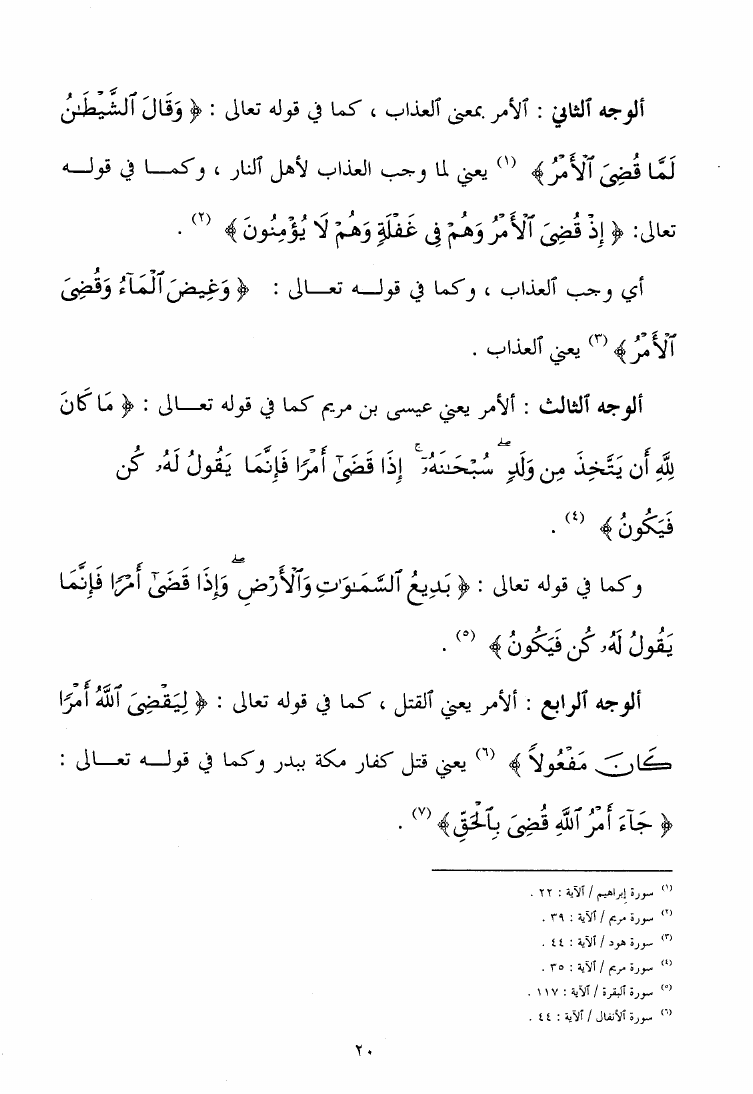 ألوجه ٱلثاني : ٱلأمر بمعنى ٱلعذاب ، كما في قوله تعالى : ﴿ وَقَالَ ٱلشَّيْطَـٰنُ
لَمَّا قُضِىَ ٱلْأَمْرُ ﴾ (١) يعني لما وجب العذاب لأهل ٱلنار ، وكمـــا في قولـــه
تعالى: ﴿ إِذْ قُضِىَ ٱلْأَمْرُ وَهُمْ فِى غَفْلَةٍ وَهُمْ لَا يُؤْمِنُونَ ﴾ (٢) .
أي وجب ٱلعذاب ، وكما في قولـــه تعـــالى : ﴿ وَغِيضَ ٱلْمَآءُ وَقُضِىَ
ٱلْأَمْرُ ﴾ (٣) يعني ٱلعذاب .
ألوجه ٱلثالث : ألأمر يعني عيسى بن مريم كما في قوله تعـــالى : ﴿ مَا كَانَ
لِلَّهِ أَن يَتَّخِذَ مِن وَلَدٍ ۖ سُبْحَـٰنَهُۥٓ ۚ إِذَا قَضَىٰٓ أَمْرًا فَإِنَّمَا يَقُولُ لَهُۥ كُن
فَيَكُونُ ﴾ (٤) .
وكما في قوله تعالى : ﴿ بَدِيعُ ٱلسَّمَـٰوَٰتِ وَٱلْأَرْضِ ۖ وَإِذَا قَضَىٰٓ أَمْرًا فَإِنَّمَا
يَقُولُ لَهُۥ كُن فَيَكُونُ ﴾ (٥) .
ألوجه ٱلرابع : ألأمر يعني ٱلقتل ، كما في قوله تعالى : ﴿ لِيَقْضِىَ ٱللَّهُ أَمْرًا
كَانَ مَفْعُولًا ﴾ (٦) يعني قتل كفار مكة ببدر وكما في قولـــه تعـــالى :
﴿ جَآءَ أَمْرُ ٱللَّهِ قُضِىَ بِٱلْحَقِّ ﴾ (٧) .
(١) سورة إبراهيم / ٱلآية : ٢٢ .
(٢) سورة مريم / ٱلآية : ٣٩ .
(٣) سورة هود / ٱلآية : ٤٤ .
(٤) سورة مريم / ٱلآية : ٣٥ .
(٥) سورة ٱلبقرة / ٱلآية : ١١٧ .
(٦) سورة ٱلأنفال / ٱلآية : ٤٤ .
٢٠